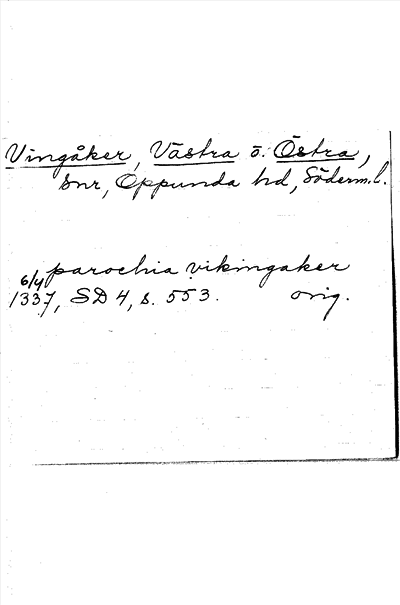 Vingåker, Västra o. Östra,
snr, Oppunda hd, Söderm.l.
parochia vikingaker
6/4 1337, SD 4, s. 553. orig.